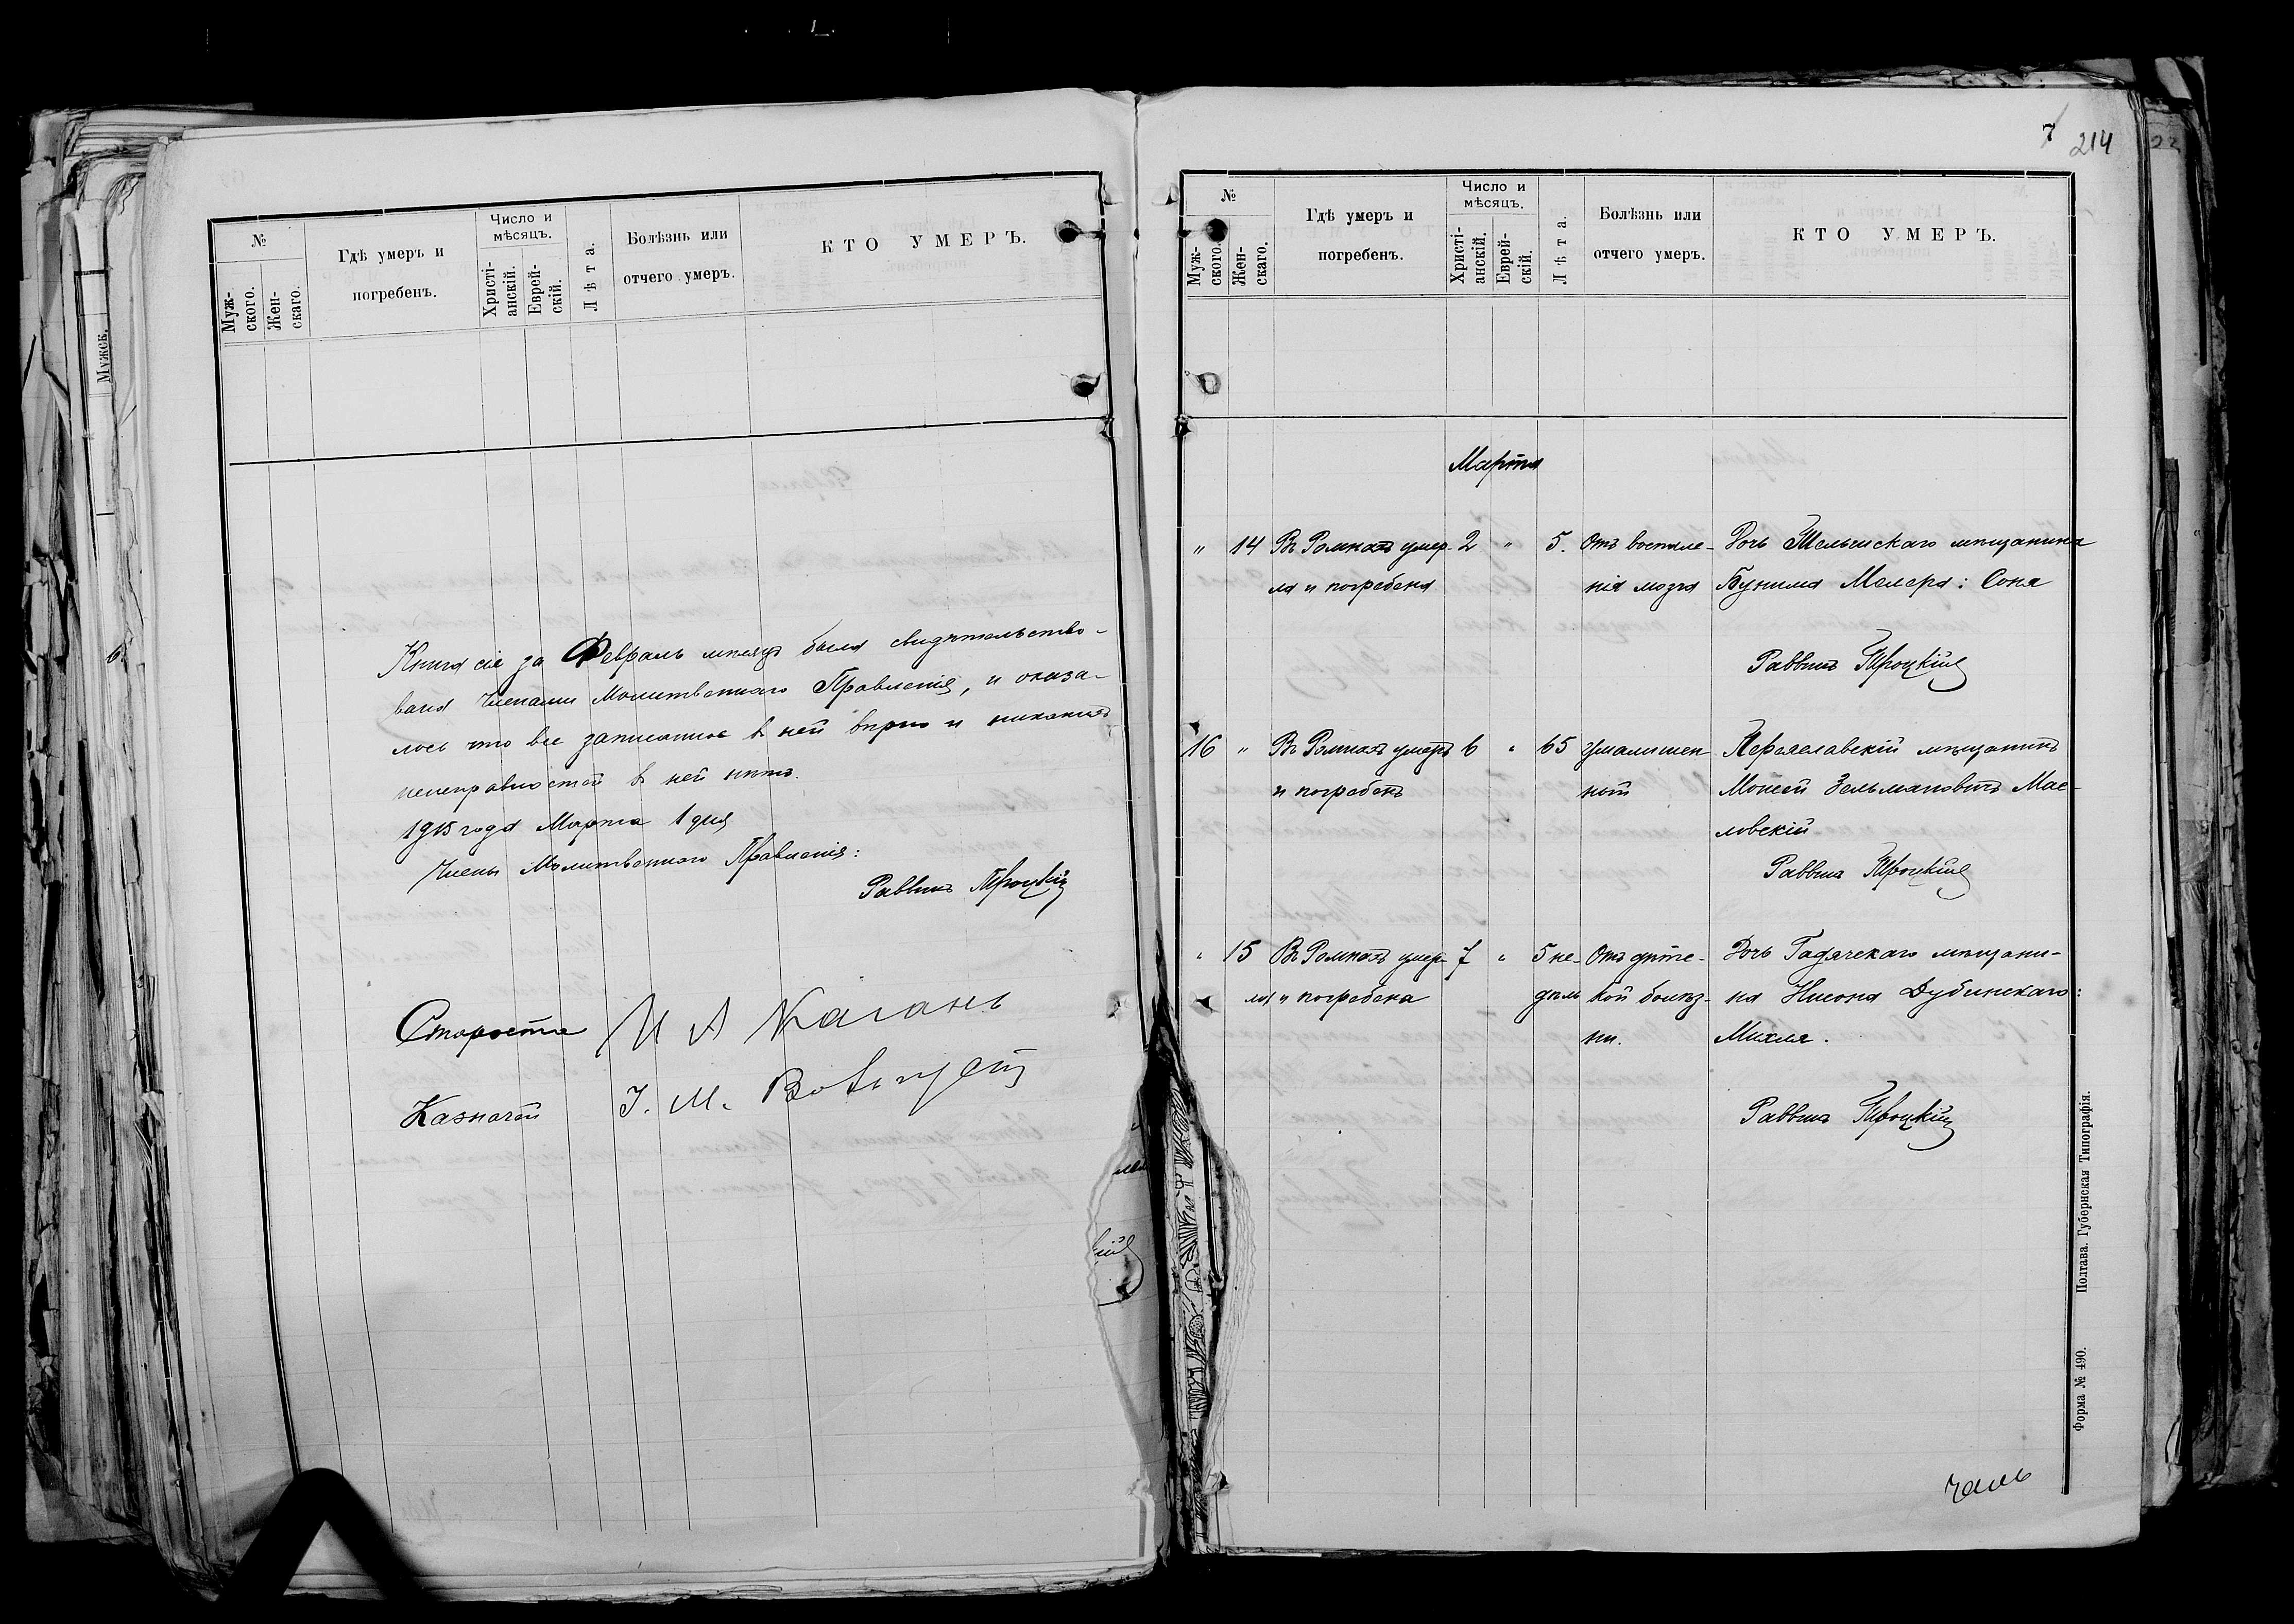 7
214
№
Муж-
ского.
Жен-
скаго.
Гдѣ умеръ и
погребенъ.
Число и
мѣсяцъ.
Христі-
анскій.
Еврей-
скій.
Лѣта.
Болѣзнь или
отчего умеръ.
КТО УМЕРЪ.
Мужск.
6
Книга сія за Февраль мѣсяцъ была свидѣтельство-
вана Членами Молитвеннаго Правленія, и оказа-
лось что все записанное в ней вѣрно и никакихъ
неисправностей в ней нѣтъ.
1915 года Марта 1 дня
Члены Молитвеннаго Правленія:
Раввинъ Троцкій
Староста И А Каганъ
Казначей І. М.
№
Муж-
ского.
Жен-
скаго.
Гдѣ умеръ и
погребенъ.
Число и
мѣсяцъ.
Христі-
анскій.
Еврей-
скій.
Лѣта.
Болѣзнь или
отчего умеръ.
КТО УМЕРЪ.
Марта
" 14 Въ Ромнахъ умер- 2 " 5. Отъ воспале- Дочь мѣщанина
ла и погребена нія мозга Бунима Мелера: Соня
Раввинъ Троцкій
16 " Въ Ромнахъ умеръ 6 " 65 Умалишен- Переяславскій мѣщанинъ
и погребенъ ный Моисей Зельмановичъ Мас-
ловскій
Раввинъ Троцкій
" 15 Въ Ромнахъ умер- 7 " 5 не- Отъ дѣтс- Дочь Гадячскаго мѣщани-
ла и погребена дѣль кой болѣз- на Нисона Дубинскаго:
ни. Михля.
Раввинъ Троцкій
Форма № 490. Полтава. Губернская Типографія.